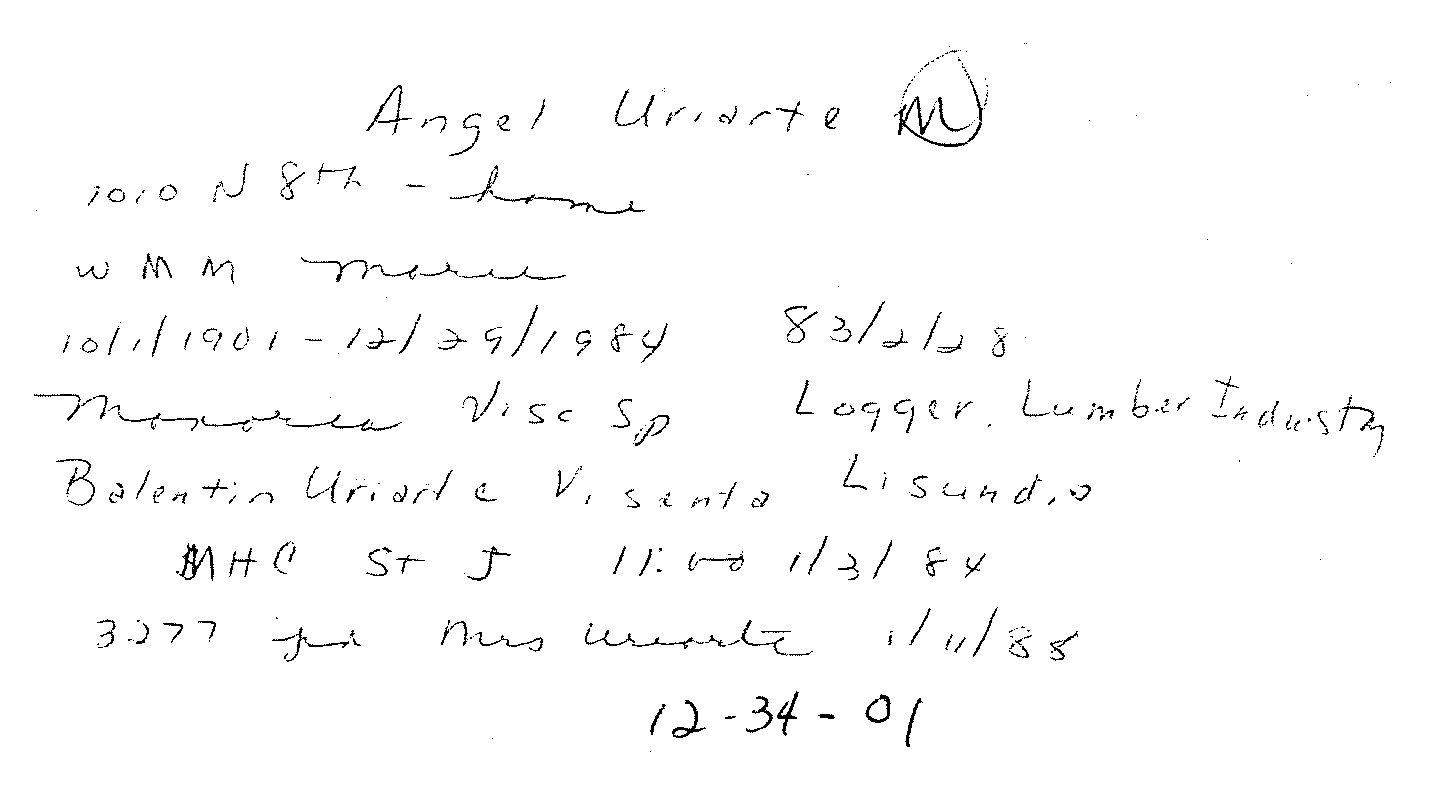 Angel Uriarte M
1010 N 8th - home
W M M Marie
10/1/1901 - 12/29/1984 83/2/28
Visc Sp Logger. Lumber Industry
Balentin Uriarte Visenta Lisundio
MHC St J 11:00 1/3/84
3277 pd Mrs Uriarte 1/11/85
12-34-01